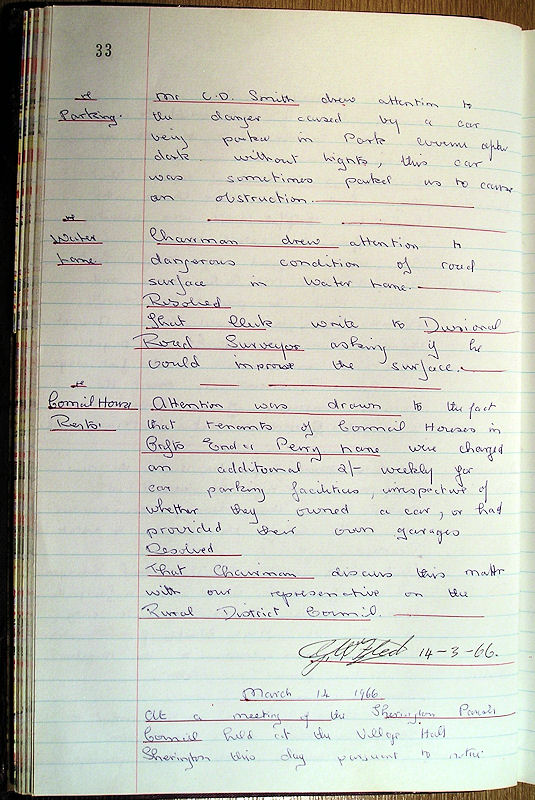 33
re
Parking.
Mr C.D. Smith drew attention to
the danger caused by a car
being parked in Park after
dark without lights, this car
was sometimes parked as to cause
an obstruction.
re
Water
Lane
Chairman drew attention to
dangerous condition of road
surface in Water Lane.
Resolved
That Clerk write to Divisional
Road Surveyor asking if he
could improve the surface.
re
Council House
Rents.
Attention was drawn to the fact
that tenants of Council Houses in
Crofts End & Perry Lane were charged
an additional 2/- weekly for
car parking facilities, irrespective of
whether they owned a car, or had
provided their own garages
Resolved
That Chairman discuss this matter
with our representive on the
Rural District Council.
14-3-66.
March 14 1966
At a meeting of the Sherington Parish
Council held at the Village Hall
Sherington this day pursuant to notice